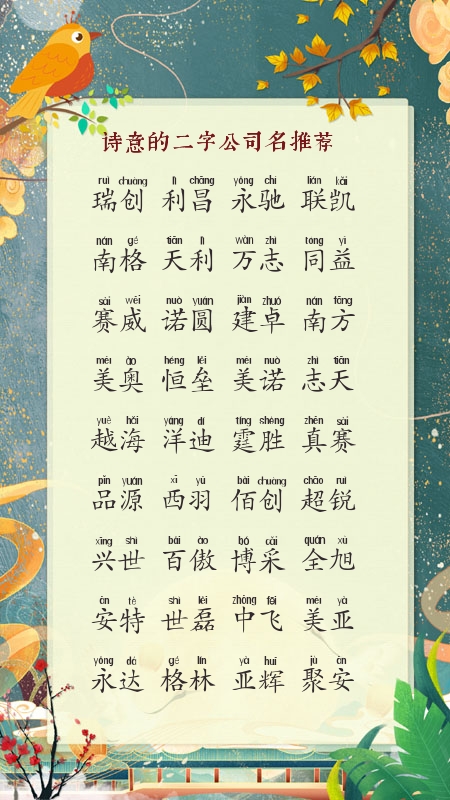 诗意的二字公司名推荐
ruì chuàng lì chāng yóng chí lián kǎi
瑞创 利昌 永驰 联凯
nán gé tiān lì wàn zhì tóng yì
南格 天利 万志 同益
sài wēi nuò yuán jiàn zhuó nán fāng
赛威 诺圆 建卓 南方
měi ào héng lěi měi nuò zhì tiān
美奥 恒垒 美诺 志天
yuè hǎi yáng dí tíng shèng zhēn sài
越海 洋迪 霆胜 真赛
pǐn yuán xī yǔ bǎi chuàng chāo ruì
品源 西羽 佰创 超锐
xīng shì bǎi ào bó cǎi quán xù
兴世 百傲 博采 全旭
ān tè shì lěi zhōng fēi měi yà
安特 世磊 中飞 美亚
yóng dá gé lín yà huī jù ān
永达 格林 亚辉 聚安